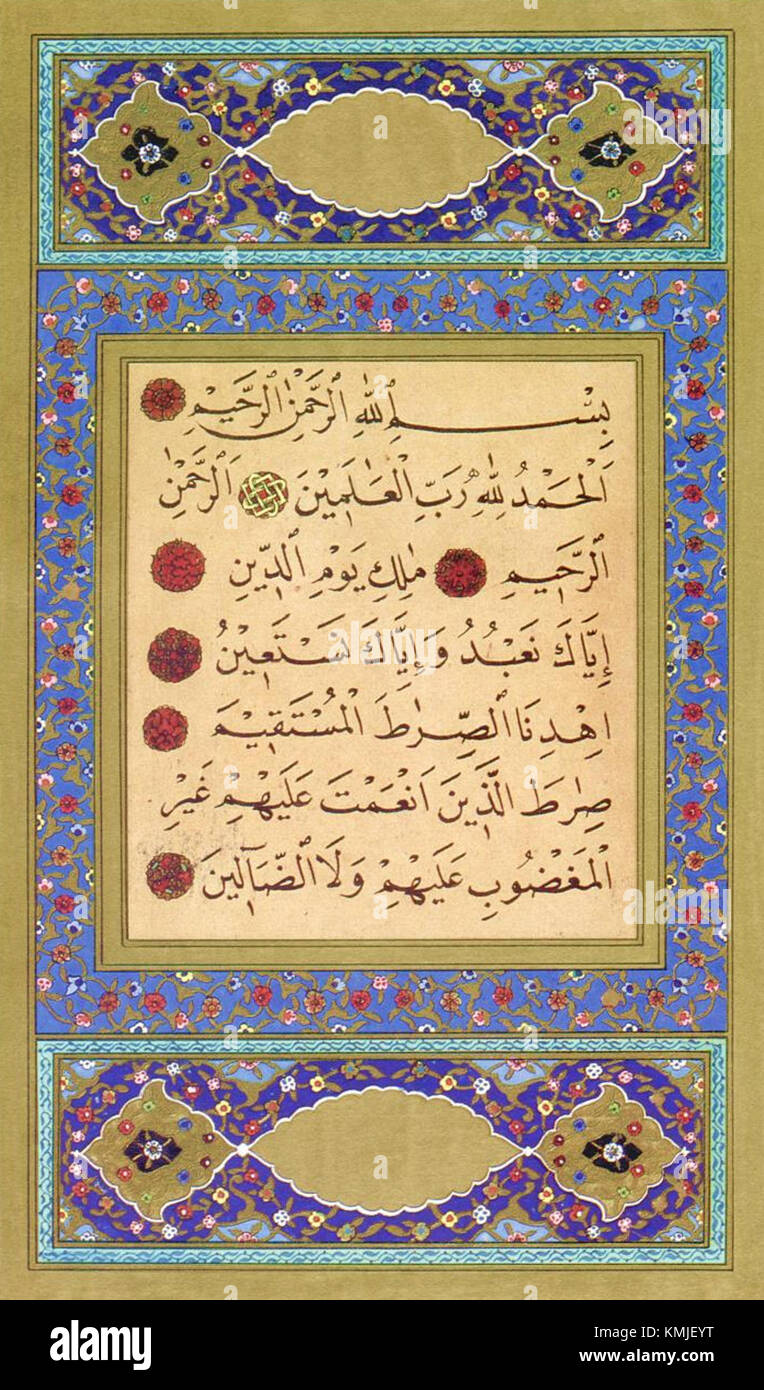 بِسْمِ ٱللّٰهِ ٱلرَّحْمٰنِ ٱلرَّحٖيمِ
اَلْحَمْدُ لِلّٰهِ رَبِّ الْعَالَمٖينَ اَلرَّحْمٰنِ
الرَّحٖيمِ مٰلِكِ يَوْمِ الدّٖينِ
اِيَّاكَ نَعْبُدُ وَاِيَّاكَ نَسْتَعٖينُ
اِهْدِنَا الصِّرَاطَ الْمُسْتَقٖيمَ
صِرَاطَ الَّذٖينَ اَنْعَمْتَ عَلَيْهِمْ غَيْرِ
الْمَغْضُوبِ عَلَيْهِمْ وَلَا الضَّٓالّٖينَ
a
alamy
a
alamy
a
alamy
Image ID: KMJEYT
www.alamy.com